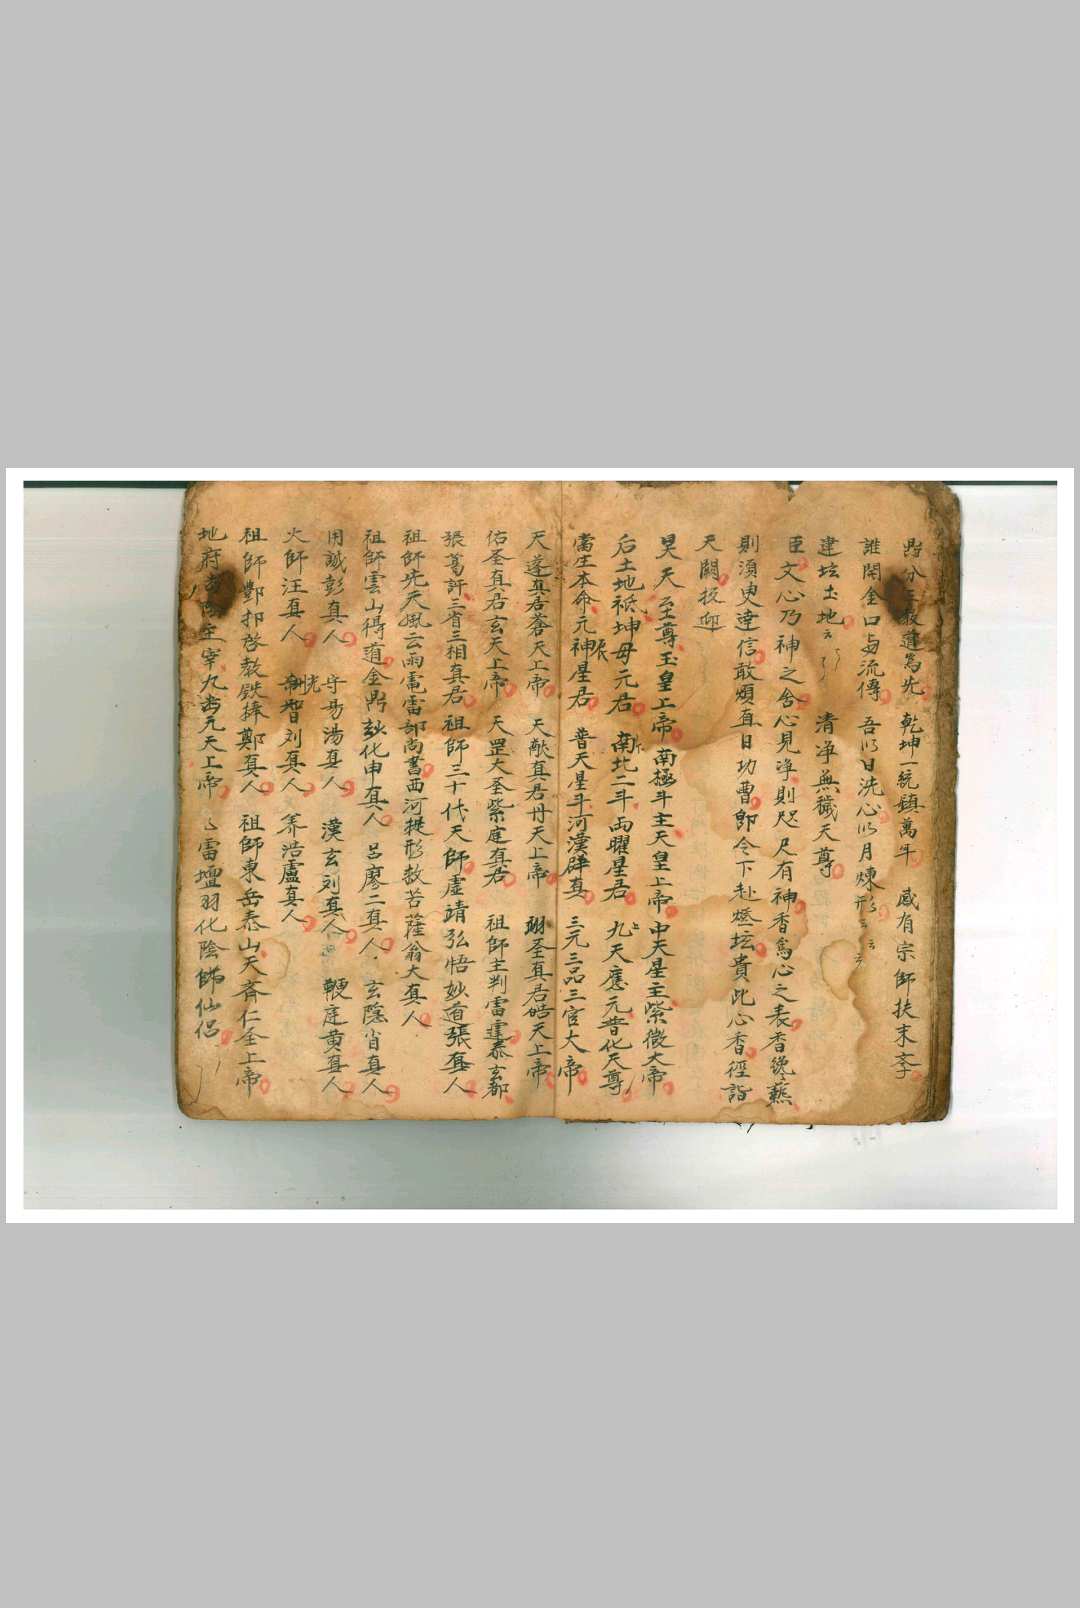 階分三教道為先 乾坤一統鎮萬年 咸有宗師扶末季
誰開金口與流傳 吾以日洗心以月煉形云云云
建坛土地云 清净無穢天尊
臣文心乃神之舍心見净則咫尺有神香為心之表香纔爇
則須臾達信敢煩直日功曹即今下赴燈坛賁此心香徑詣
天闕投迎
昊天至尊玉皇上帝 南極斗主天皇上帝 中天星主紫微大帝
后土地祗坤母元君 南北二斗兩曜星君 九天應元普化天尊
當生本命元神星君 普天星斗河漢群真 三元三品三官大帝
天蓬真君蒼天上帝 天猷真君丹天上帝 翊圣真君皓天上帝
佑圣真君玄天上帝 天罡大圣紫庭真君 祖師主判雷霆泰玄都
張葛許三省三相真君 祖師三十代天師虛靖弘悟妙道張真人
祖師先天風云雨電雷部尚書西河提形救苦薩翁大真人
祖師雲山得道金鼎玅化申真人 呂廖二真人 玄蔭省真人
用誠彭真人 守易湯真人 漢玄刘真人 鞕庭黄真人
火師汪真人 洸智刘真人 养浩盧真人
祖師酆都啓教鉄捧鄭真人 祖師東岳泰山天齊仁全上帝
地府 主宰九幽元天上帝 雷壇羽化陰師仙侶